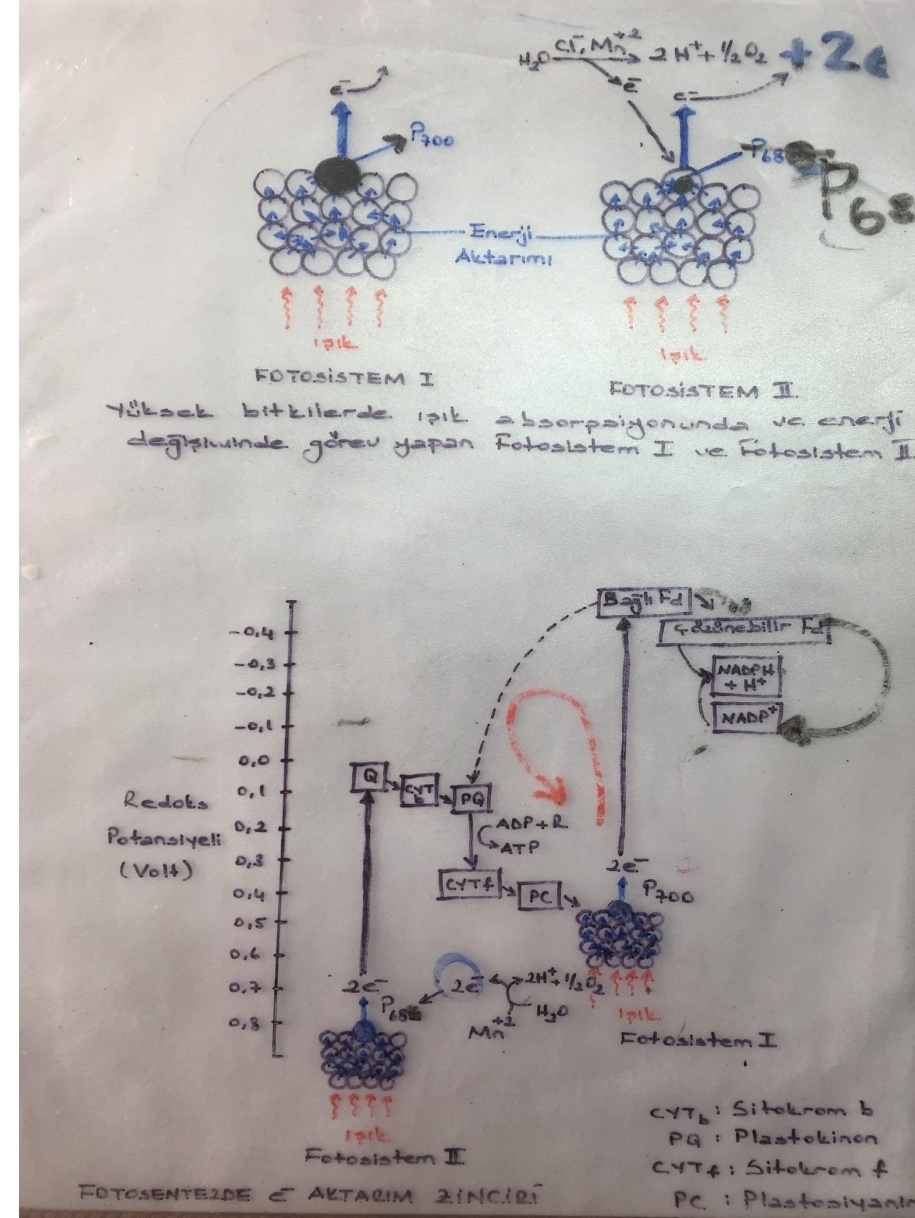 H₂O Cl⁻, Mn⁺² → 2H⁺ + ½O₂ + 2e
e⁻
e⁻
e⁻
P₇₀₀
Enerji
Aktarımı
ışık
ışık
FOTOSİSTEM I
FOTOSİSTEM II
Yüksek bitkilerde ışık absorpsiyonunda ve enerji
değişiminde görev yapan Fotosistem I ve Fotosistem II
Bağlı Fd
Çözünebilir Fd
NADPH
+ H⁺
NADP⁺
-0,4
-0,3
-0,2
-0,1
0,0
0,1
0,2
0,3
0,4
0,5
0,6
0,7
0,8
Redoks
Potansiyeli
(Volt)
Q
CYT b
PQ
ADP+P
ATP
CYTf
PC
2e⁻
P₇₀₀
2e⁻
2e⁻
2H⁺ ½O₂
H₂O
Mn⁺²
Işık
Fotosistem I
Işık
Fotosistem II
CYT_b : Sitokrom b
PQ : Plastokinon
CYTf : Sitokrom f
PC : Plastosiyanin
FOTOSENTEZDE e⁻ AKTARIM ZİNCİRİ